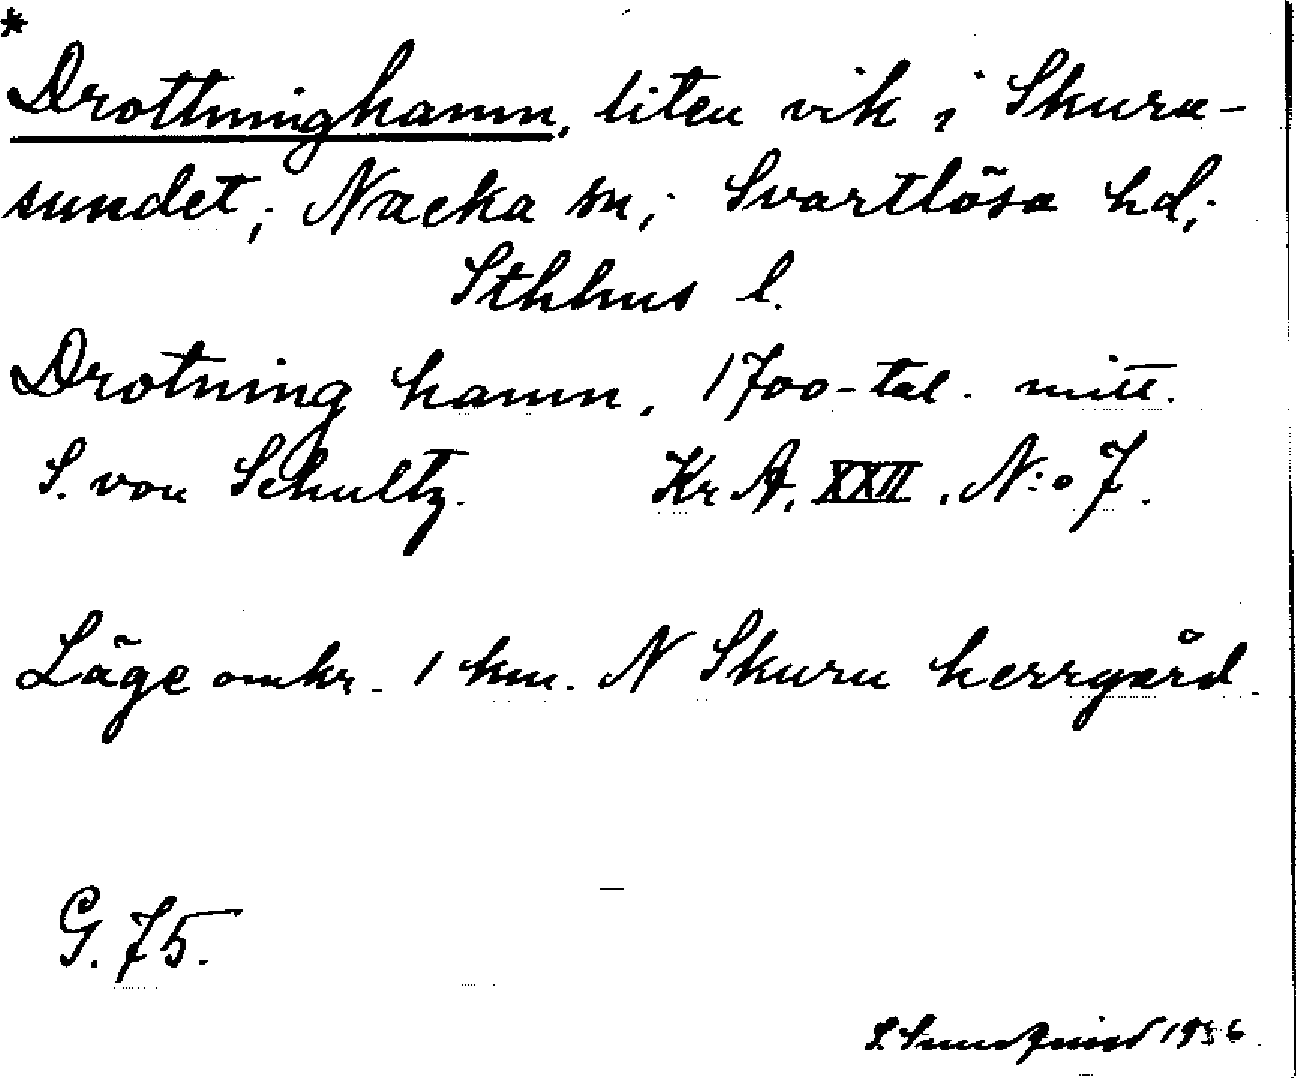 *
Drottninghamn, liten vik i Skuru-
sundet; Nacka sn; Svartlösa hd;
Sthlms l.
Drotning hamn, 1700-tal. mitt.
S. von Schultz. Kr A. XXII. N:o 7.
Läge omkr. 1 km. N Skuru herrgård.
G. 75.